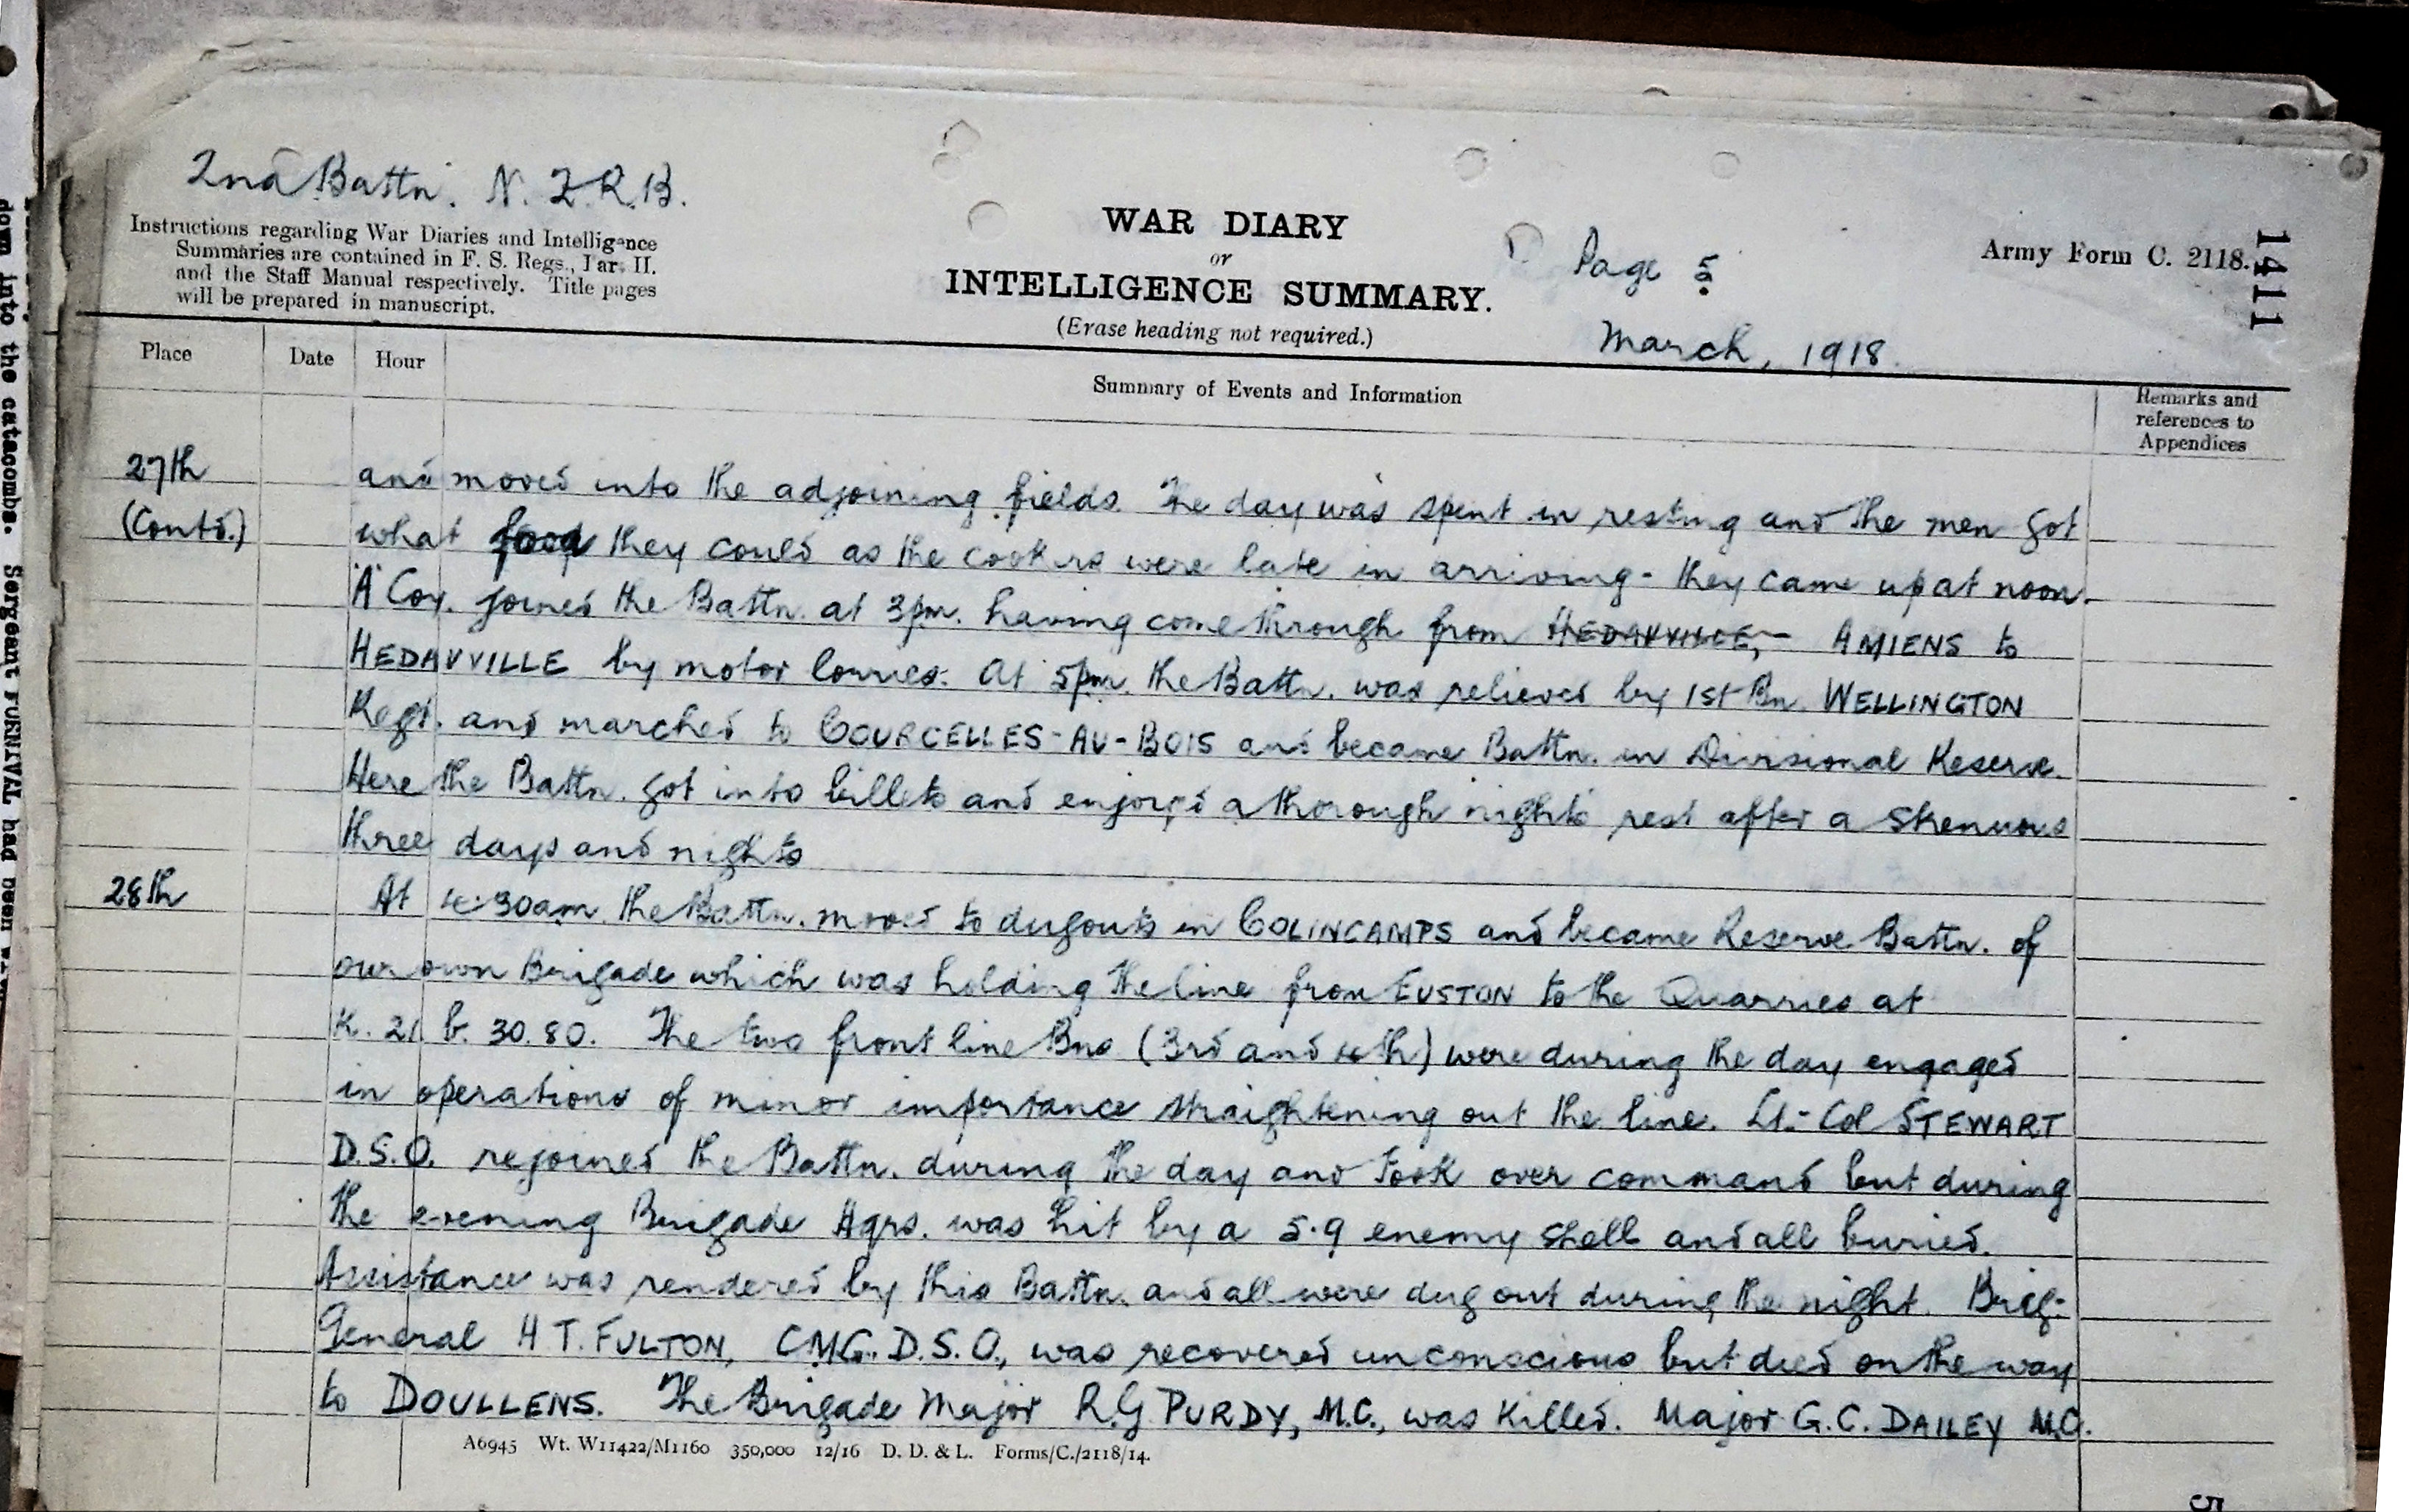 2nd Battn. N.Z.R.B.
Instructions regarding War Diaries and Intelligence
Summaries are contained in F. S. Regs., Part II.
and the Staff Manual respectively. Title pages
will be prepared in manuscript.
WAR DIARY
or
INTELLIGENCE SUMMARY.
(Erase heading not required.)
Page 5
March, 1918.
Army Form C. 2118.
1411
Place
Date
Hour
Summary of Events and Information
Remarks and
references to
Appendices
27th
(Contd.)
and moved into the adjoining fields. The day was spent in resting and the men got
what food they could as the cookers were late in arriving - they came up at noon.
"A" Coy. joined the Battn. at 3pm. having come through from HEDAUVILLE, AMIENS to
HEDAUVILLE by motor lorries. At 5pm. the Battn. was relieved by 1st Bn. WELLINGTON
Regt. and marched to COURCELLES-AU-BOIS and became Battn. in Divisional Reserve.
Here the Battn. got into billets and enjoyed a thorough nights rest after a strenuous
three days and nights
28th
At 4.30am. the Battn. moved to dugouts in COLINCAMPS and became Reserve Battn. of
our own Brigade which was holding the line from EUSTON to the Quarries at
K. 21 b. 30.80. The two front line Bns (3rd and 4th) were during the day engaged
in operations of minor importance straightening out the line. Lt.-Col STEWART
D.S.O. rejoined the Battn. during the day and took over command but during
the evening Brigade Hqrs. was hit by a 5.9 enemy shell and all buried.
Assistance was rendered by this Battn. and all were dug out during the night. Brig-
General H T. FULTON, C.M.G. D.S.O., was recovered unconscious but died on the way
to DOULLENS. The Brigade Major R.G PURDY, M.C., was killed. Major G.C. DAILEY M.C.
A6945 Wt. W11422/M1160 350,000 12/16 D. D. & L. Forms/C./2118/14.
5
down into the catacombs. Sergeant FURNIVAL had been